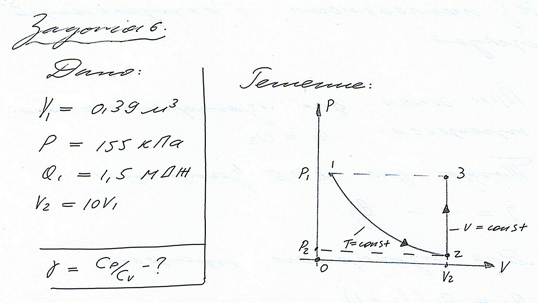 Задача 6.
Дано:
V₁ = 0,39 м³
P = 155 кПа
Q₁ = 1,5 МДЖ
V₂ = 10V₁
γ = Cp/Cv - ?
Решение:
P
P₁
1
3
T=const
V = const
P₂
2
0
V₂
V